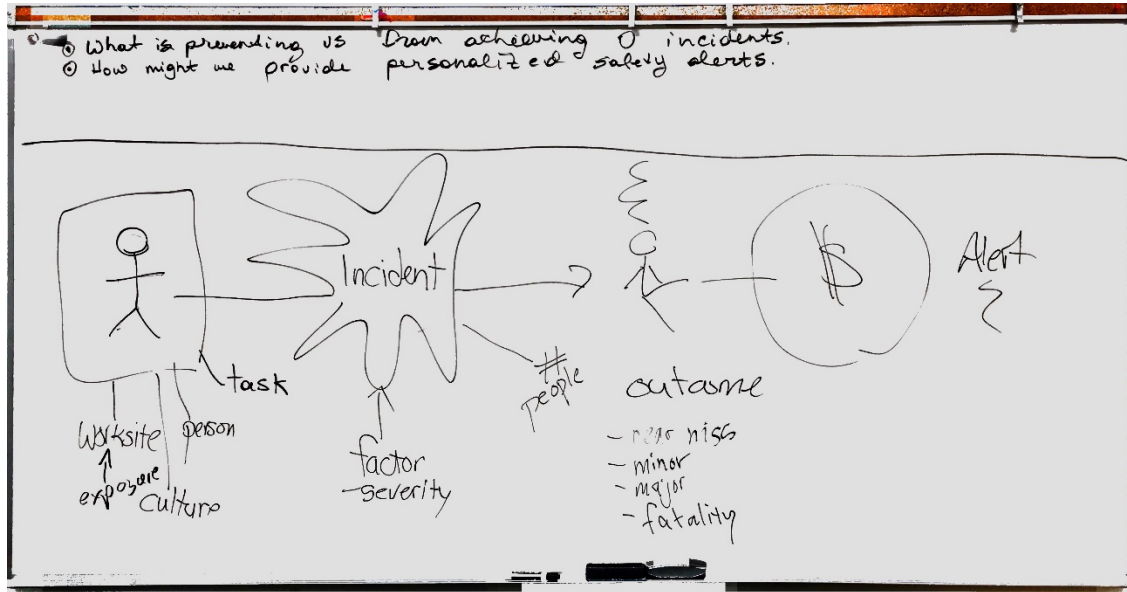 What is prevending us from acheeving 0 incidents.
How might we provide personalized safety alerts.
Incident
$
Alert
task
# people
Worksite
person
exposure
Culture
factor
- severity
outcome
- near miss
- minor
- major
- fatality